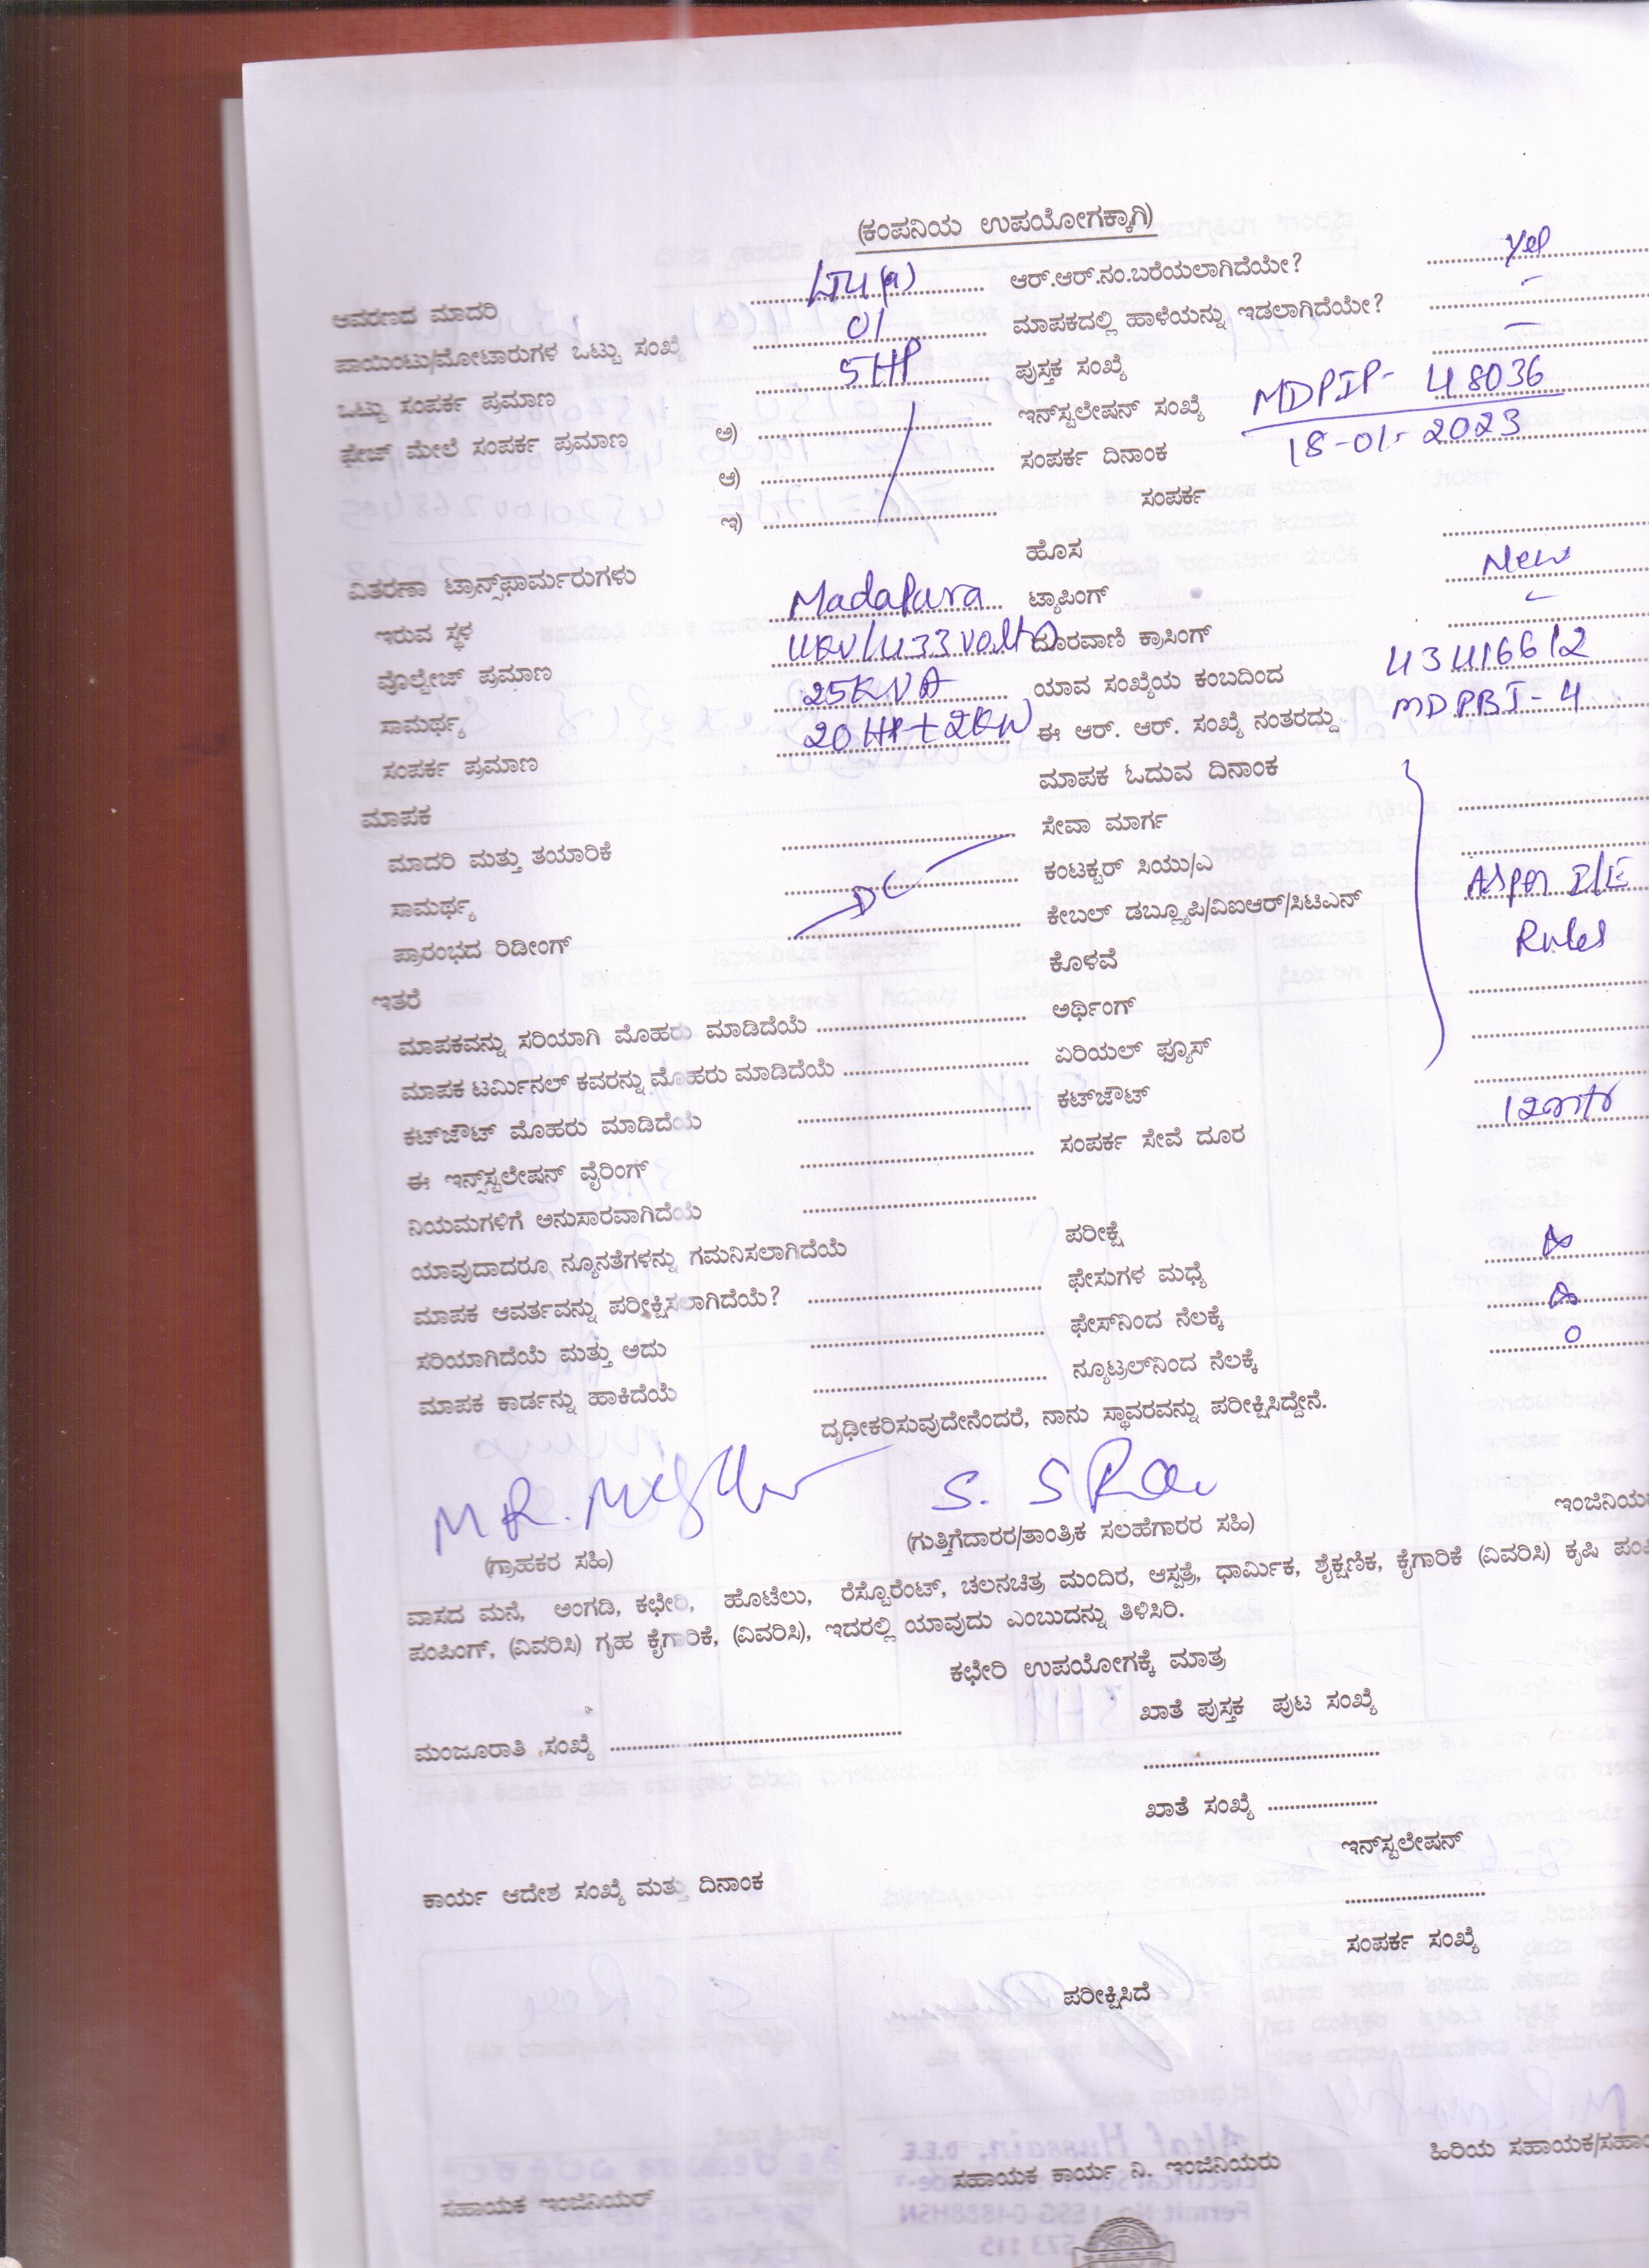 (ಕಂಪನಿಯ ಉಪಯೋಗಕ್ಕಾಗಿ)
ಆವರಣದ ಮಾದರಿ LT4(a) ಆರ್.ಆರ್.ನಂ.ಬರೆಯಲಾಗಿದೆಯೇ? yes
ಪಾಯಿಂಟು/ಮೋಟಾರುಗಳ ಒಟ್ಟು ಸಂಖ್ಯೆ 01 ಮಾಪಕದಲ್ಲಿ ಹಾಳೆಯನ್ನು ಇಡಲಾಗಿದೆಯೇ? -
ಒಟ್ಟು ಸಂಪರ್ಕ ಪ್ರಮಾಣ 5HP ಪುಸ್ತಕ ಸಂಖ್ಯೆ -
ಫೇಜ್ ಮೇಲೆ ಸಂಪರ್ಕ ಪ್ರಮಾಣ ಅ) ಇನ್‌ಸ್ಟಲೇಷನ್ ಸಂಖ್ಯೆ MDPIP- 48036
ಆ) ಸಂಪರ್ಕ ದಿನಾಂಕ 18-01-2023
ಇ) ಸಂಪರ್ಕ
ವಿತರಣಾ ಟ್ರಾನ್ಸ್‌ಫಾರ್ಮರುಗಳು ಹೊಸ New
ಇರುವ ಸ್ಥಳ Madapura ಟ್ಯಾಪಿಂಗ್ -
ವೊಲ್ಟೇಜ್ ಪ್ರಮಾಣ 11KV/433 Volts ದೂರವಾಣಿ ಕ್ರಾಸಿಂಗ್
ಸಾಮರ್ಥ್ಯ 25KVA ಯಾವ ಸಂಖ್ಯೆಯ ಕಂಬದಿಂದ 43416612
ಸಂಪರ್ಕ ಪ್ರಮಾಣ 20HP+2KW ಈ ಆರ್. ಆರ್. ಸಂಖ್ಯೆ ನಂತರದ್ದು MDPBJ-4
ಮಾಪಕ ಮಾಪಕ ಓದುವ ದಿನಾಂಕ
ಮಾದರಿ ಮತ್ತು ತಯಾರಿಕೆ ಸೇವಾ ಮಾರ್ಗ
ಸಾಮರ್ಥ್ಯ DC ಕಂಟಕ್ಟರ್ ಸಿಯು/ಎ As per I/E
ಪ್ರಾರಂಭದ ರಿಡೀಂಗ್ ಕೇಬಲ್ ಡಬ್ಲ್ಯೂಪಿ/ವಿಐಆರ್/ಸಿಟಿಎನ್ Rules
ಇತರೆ ಕೊಳವೆ
ಮಾಪಕವನ್ನು ಸರಿಯಾಗಿ ಮೊಹರು ಮಾಡಿದೆಯೆ ಅರ್ಥಿಂಗ್
ಮಾಪಕ ಟರ್ಮಿನಲ್ ಕವರನ್ನು ಮೊಹರು ಮಾಡಿದೆಯೆ ಏರಿಯಲ್ ಫ್ಯೂಸ್
ಕಟ್‌ಔಟ್ ಮೊಹರು ಮಾಡಿದೆಯೆ ಕಟ್‌ಔಟ್
ಈ ಇನ್ಸ್‌ಸ್ಟಲೇಷನ್ ವೈರಿಂಗ್ ಸಂಪರ್ಕ ಸೇವೆ ದೂರ 12mtr
ನಿಯಮಗಳಿಗೆ ಅನುಸಾರವಾಗಿದೆಯೆ
ಯಾವುದಾದರೂ ನ್ಯೂನತೆಗಳನ್ನು ಗಮನಿಸಲಾಗಿದೆಯೆ ಪರೀಕ್ಷೆ
ಮಾಪಕ ಆವರ್ತವನ್ನು ಪರೀಕ್ಷಿಸಲಾಗಿದೆಯೆ? ಫೇಸುಗಳ ಮಧ್ಯೆ ∞
ಸರಿಯಾಗಿದೆಯೆ ಮತ್ತು ಅದು ಫೇಸ್‌ನಿಂದ ನೆಲಕ್ಕೆ ∞
ಮಾಪಕ ಕಾರ್ಡನ್ನು ಹಾಕಿದೆಯೆ ನ್ಯೂಟ್ರಲ್‌ನಿಂದ ನೆಲಕ್ಕೆ 0
ದೃಢೀಕರಿಸುವುದೇನೆಂದರೆ, ನಾನು ಸ್ಥಾವರವನ್ನು ಪರೀಕ್ಷಿಸಿದ್ದೇನೆ.
M R. S. S Rao
(ಗ್ರಾಹಕರ ಸಹಿ) (ಗುತ್ತಿಗೆದಾರರ/ತಾಂತ್ರಿಕ ಸಲಹೆಗಾರರ ಸಹಿ) ಇಂಜಿನಿಯರ
ವಾಸದ ಮನೆ, ಅಂಗಡಿ, ಕಛೇರಿ, ಹೊಟೆಲು, ರೆಸ್ಟೊರೆಂಟ್, ಚಲನಚಿತ್ರ ಮಂದಿರ, ಆಸ್ಪತ್ರೆ, ಧಾರ್ಮಿಕ, ಶೈಕ್ಷಣಿಕ, ಕೈಗಾರಿಕೆ (ವಿವರಿಸಿ) ಕೃಷಿ ಪಂಪಿ
ಪಂಪಿಂಗ್, (ವಿವರಿಸಿ) ಗೃಹ ಕೈಗಾರಿಕೆ, (ವಿವರಿಸಿ), ಇದರಲ್ಲಿ ಯಾವುದು ಎಂಬುದನ್ನು ತಿಳಿಸಿರಿ.
ಕಛೇರಿ ಉಪಯೋಗಕ್ಕೆ ಮಾತ್ರ
ಮಂಜೂರಾತಿ ಸಂಖ್ಯೆ ಖಾತೆ ಪುಸ್ತಕ ಪುಟ ಸಂಖ್ಯೆ
ಖಾತೆ ಸಂಖ್ಯೆ
ಇನ್‌ಸ್ಟಲೇಷನ್
ಕಾರ್ಯ ಆದೇಶ ಸಂಖ್ಯೆ ಮತ್ತು ದಿನಾಂಕ
ಸಂಪರ್ಕ ಸಂಖ್ಯೆ
ಪರೀಕ್ಷಿಸಿದೆ
ಸಹಾಯಕ ಇಂಜಿನಿಯರ್ ಸಹಾಯಕ ಕಾರ್ಯ ನಿ. ಇಂಜಿನಿಯರು ಹಿರಿಯ ಸಹಾಯಕ/ಸಹಾ